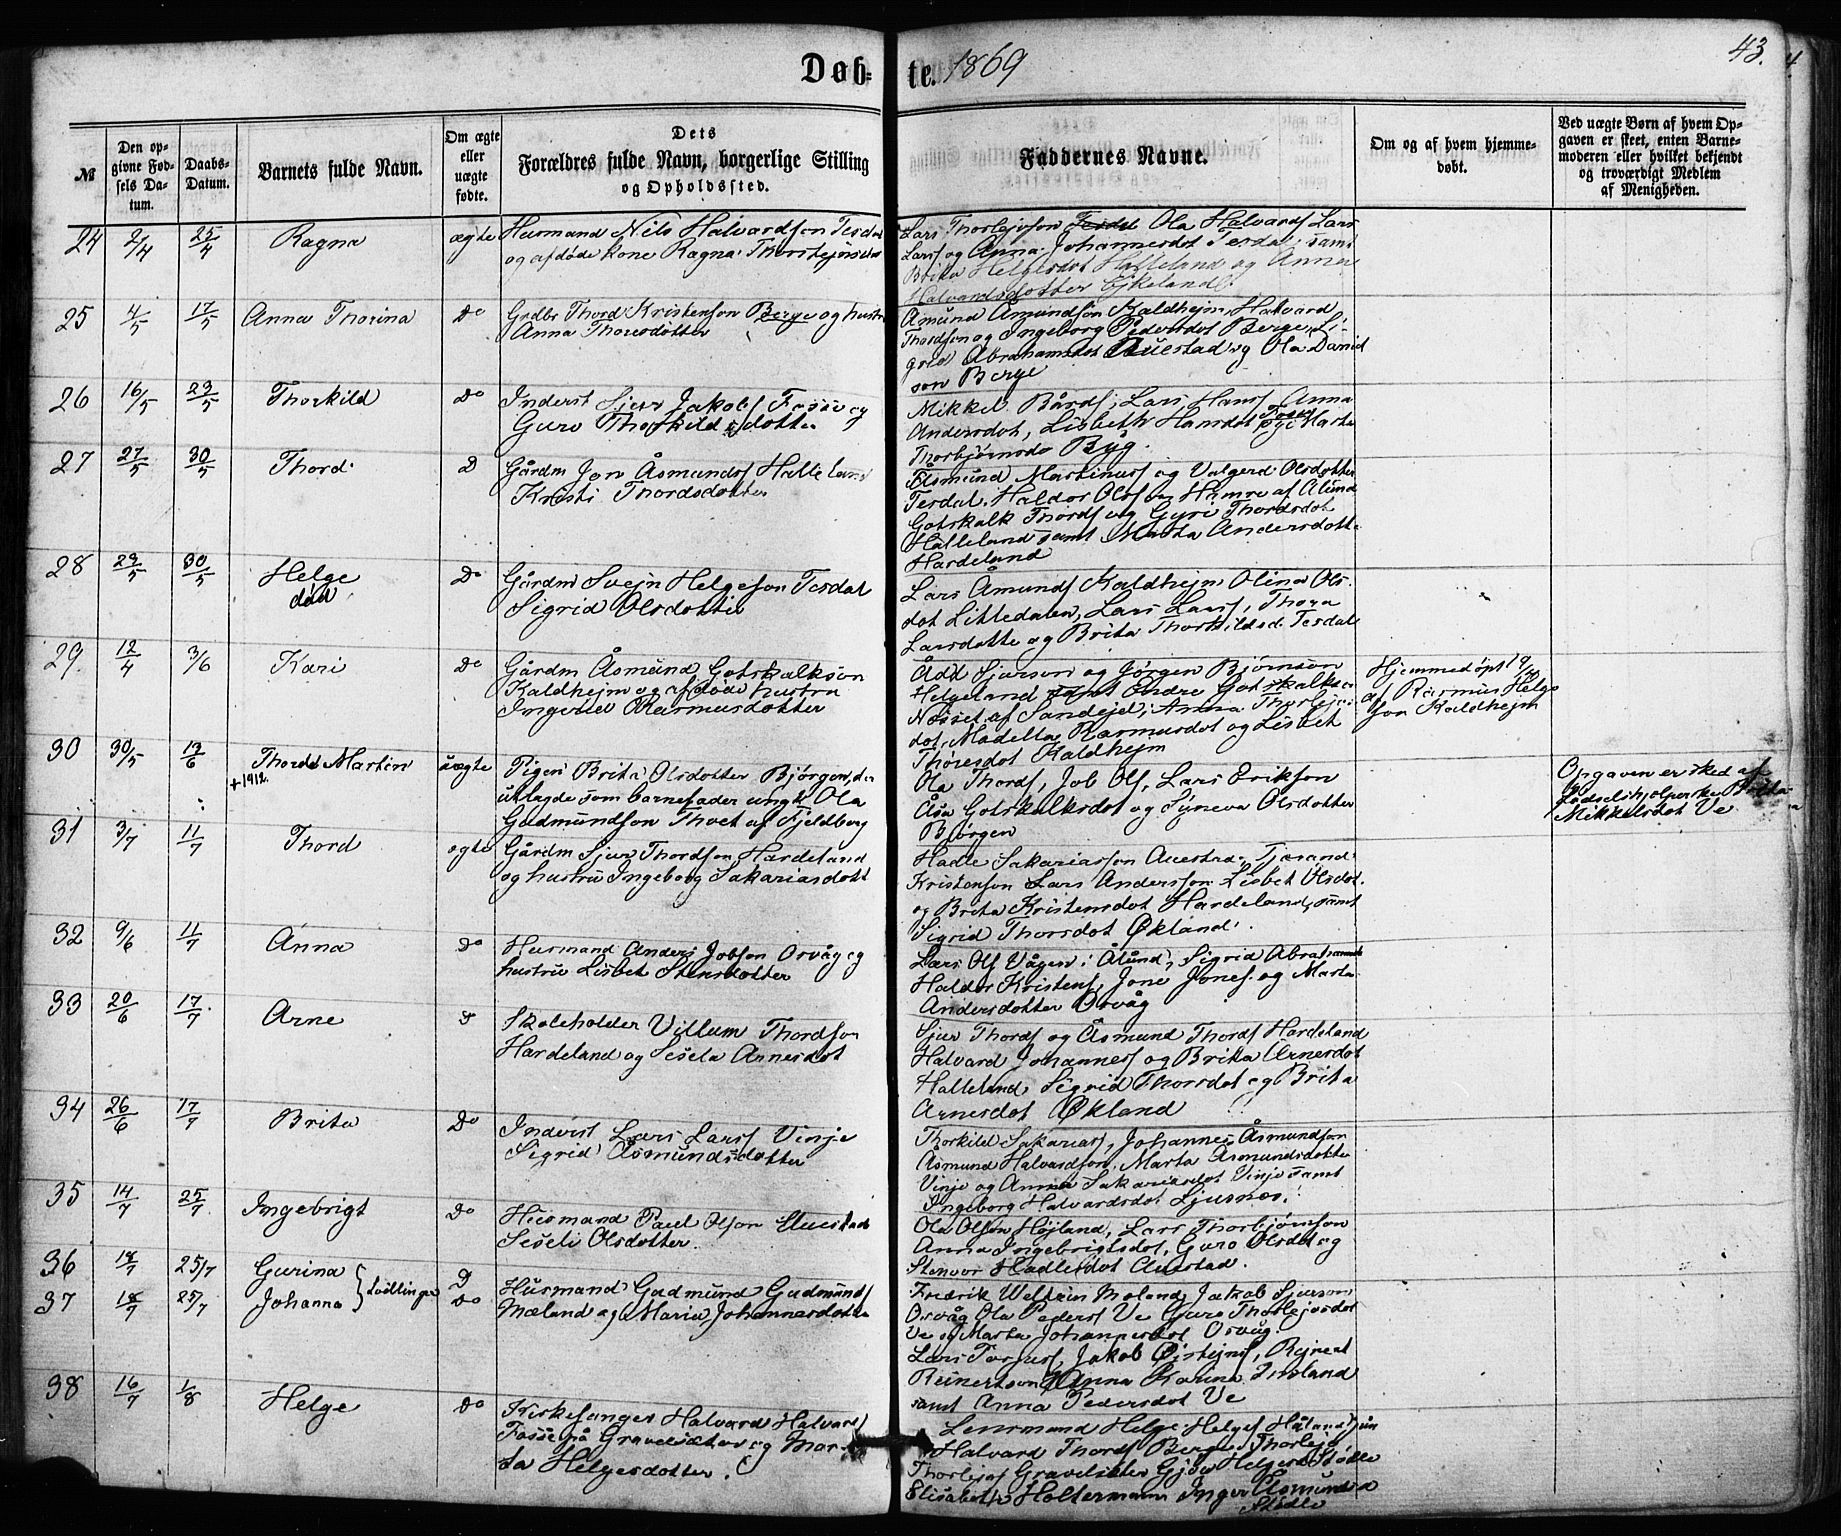 43.
Døb= te. 1869
№
Den op=
givne Fød=
sels Da=
tum.
Daabs=
Datum.
Barnets fulde Navn.
Om ægte
eller
uægte
fødte.
Dets
Forældres fulde Navn, borgerlige Stilling
og Opholdssted.
Faddernes Navne.
Om og af hvem hjemme=
døbt.
Ved uægte Børn af hvem Op=
gaven er skeet, enten Barne=
moderen eller hvilket bekjendt
og troværdigt Medlem
af Menigheden.
24 2/4 25/4 Ragna ægte
Husmand Nils Halvardson Tesdal
og afdøde kone Ragna
Lars Thorlejvson Ola Halvards Lars
Lars og Anna Johannesdot Tesdal samt
Brita Helgesdot Halleland og Anna
Halvardsdotter Ejkeland
25 4/5 17/5 Anna Thorina Do
Grdbr Thord Kristenson Berge og hustr
Anna Thoresdotter
Åmund Åmundson Kaldhejm, Halvard
Thordson og Ingeborg Pedersdot Berge, Si-
grid Abrahamsdot Auestad og Ola Daniel
son Berge
26 16/5 23/5 Thorkild Do
Inderst Sjur Jakobs Fosse og
Guro Thorkildsdotter
Mikkel Bårds, Lars Hans, Anna
Andersdot, Lisbeth Hansdot Fosse og Marta
Thorbjørnsdo Byg.
27 27/5 30/5 Thord D
Gårdm Jon Åsmunds Halleland
Kristi Thordsdotter
Åsmund Martinus og Valgerd Olsdotter
Tesdal, Haldor Olson Hamre af Ålund
Gotskalk Thords og Gyri Thordsdot
Halleland samt Marta Andersdott
Hardeland
28 23/5 30/5 Helge Do
død
Gårdm Svejn Helgeson Tesdal
Sigrid Olsdotter
Lars Åmunds Kaldhejm Olina Ols-
dot Littledalen, Lars Lars, Thora
Larsdotte og Brita Thorkildsd. Tesdal
29 12/4 3/6 Kari Do
Gårdm Åsmund Gotskalkson
Kaldhejm og afdøde hustru
Ingerid Rasmusdotter
Ådd Sjurson og Jørgen Bjørnson
Helgeland samt Endre Gotskalkson
Nøsset af Sandejd, Anna Thorlejvs
dot, Madella Rasmusdot og Lisbet
Thoresdot Kaldhejm
Hjemmedøpt
af Rasmus Helge
son Kaldhejm
30 30/5 13/6 Thord Martin uægte
+1912.
Pigen Brita Olsdotter Bjørgen, den
utlagde som barnefader ungk Ola
Gudmundson Thvet af Fjeldberg
Ola Thords, Job Ols, Lars Erikson
Åsa Gotskalksdot og Syneva Olsdotter
Bjørgen
Opgaven er sked af
Fødselshjelperske Brita
Mikkelsdot Ve
31 3/7 11/7 Thord egte
Gårdm Sjur Thordson Hardeland
og hustru Ingeborg Sakariasdott
Hadle Sakariasson Auestad,
Kristenson Lars Anderson Lisbet Olsdot.
og Brita Kristensdot Hardeland, samt
Sigrid Thorsdot Økland.
32 9/6 11/7 Anna Do
Husmand Anders Jobson Orvåg og
hustru Lisbet Stensdotter
Lars Ols Vågen i Ålund, Sigrid Abrahamsd
Haldor Kristens, Jone Jones og Marta
Andersdotter Orvåg
33 20/6 17/7 Arne D
Skoleholder Villum Thordson
Hardeland og Seselia Arnesdot
Sjur Thords og Åsmund Thords Hardeland
Halvard Johannes og Brita Arnesdot
Halleland Sigrid Thorsdot og Brita
Arnesdot Økland
34 26/6 17/7 Brita Do
Inderst Lars Lars Vinje
Sigrid Åsmundsdotter
Thorkild Sakarias, Johannes Åsmundson
Åsmund Halvardson Marta Åsmundsdotter
Vinje og Anna Sakariasdot Vinje samt
Ingeborg Halvardsdot Ljusnes
35 14/7 25/7 Ingebrigt Do
Husmand Paul Olson Auestad
Seseli Olsdotter.
Ola Olson Højland, Lars Thorbjørnson
Anna Ingebrigtsdot, Guro Olsdot og
Stenvor Hadlesdot Auestad.
36 18/7 25/7 Gurina D
37 18/7 25/7 Johanna } tvillinger Do
Husmand Gudmund Gudmunds
Mæland og Maria Johannesdotter
Fredrik Moland, Jakob Sjurson
Orvåg Ola Peders Ve Guro Thorlejvsdot
Ve og Marta Johannesdot Orvåg.
Lars Jakob Østejns, Rejnert
Reinertson Anna Karina
samt Anna Pedersdot Ve
38 16/7 1/8 Helge Do
Kirkesanger Halvard Halvards
Fosse på Gravelsæter og Mar-
ta Helgesdotter.
Lensmand Helge Helges Håland
Halvard Thords Berge, Thorlejv
Thorlejvs Gravelsæter Helges Stødle
Elisabeth Holtermann Inger Åsmundsd
Stødle